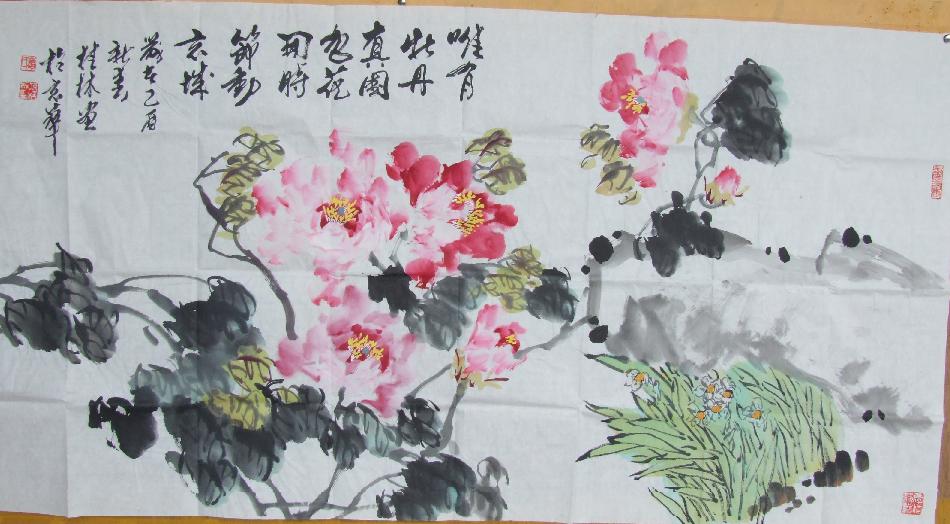 唯有
牡丹
真國
色花
開時
節動
京城
歲在乙酉
新春
桂林画
於京華